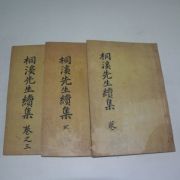 桐溪先生續集 卷
桐溪先生續集
桐溪先生續集 卷之三